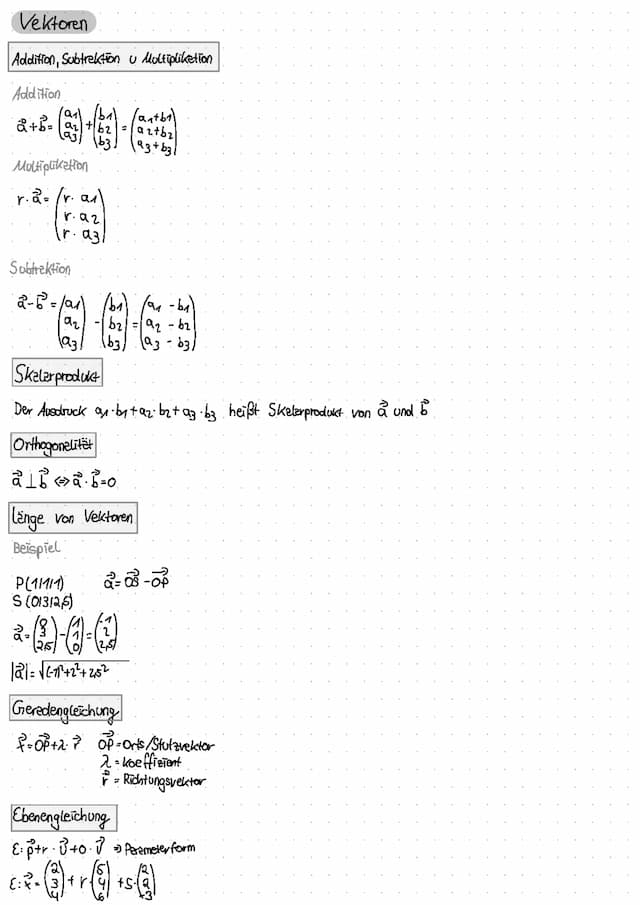 Vektoren
Addition, Subtraktion u Multiplikation
Addition
a⃗+b⃗=(a1 a2 a3)+(b1 b2 b3)=(a1+b1 a2+b2 a3+b3)
Multiplikation
r·a⃗=(r·a1 r·a2 r·a3)
Subtraktion
a⃗-b⃗=(a1 a2 a3)-(b1 b2 b3)=(a1-b1 a2-b2 a3-b3)
Skalarprodukt
Der Ausdruck a1·b1+a2·b2+a3·b3 heißt Skalarprodukt von a⃗ und b⃗
Orthogonalität
a⃗⊥b⃗⇔a⃗·b⃗=0
Länge von Vektoren
Beispiel
P(1|1|1) a⃗=OS⃗-OP⃗
S(0|3|2,5)
a⃗=(0 3 2,5)-(1 1 0)=(-1 2 2,5)
|a⃗|=√(-1)²+2²+2,5²
Geradengleichung
x⃗=OP⃗+λ·r⃗ OP⃗=Orts/Stutzvektor
λ=koeffizient
r⃗=Richtungsvektor
Ebenengleichung
E:p⃗+r·u⃗+o·v⃗ ⇒Parameterform
E:x⃗=(2 3 4)+r·(5 4 6)+s·(2 2 -3)